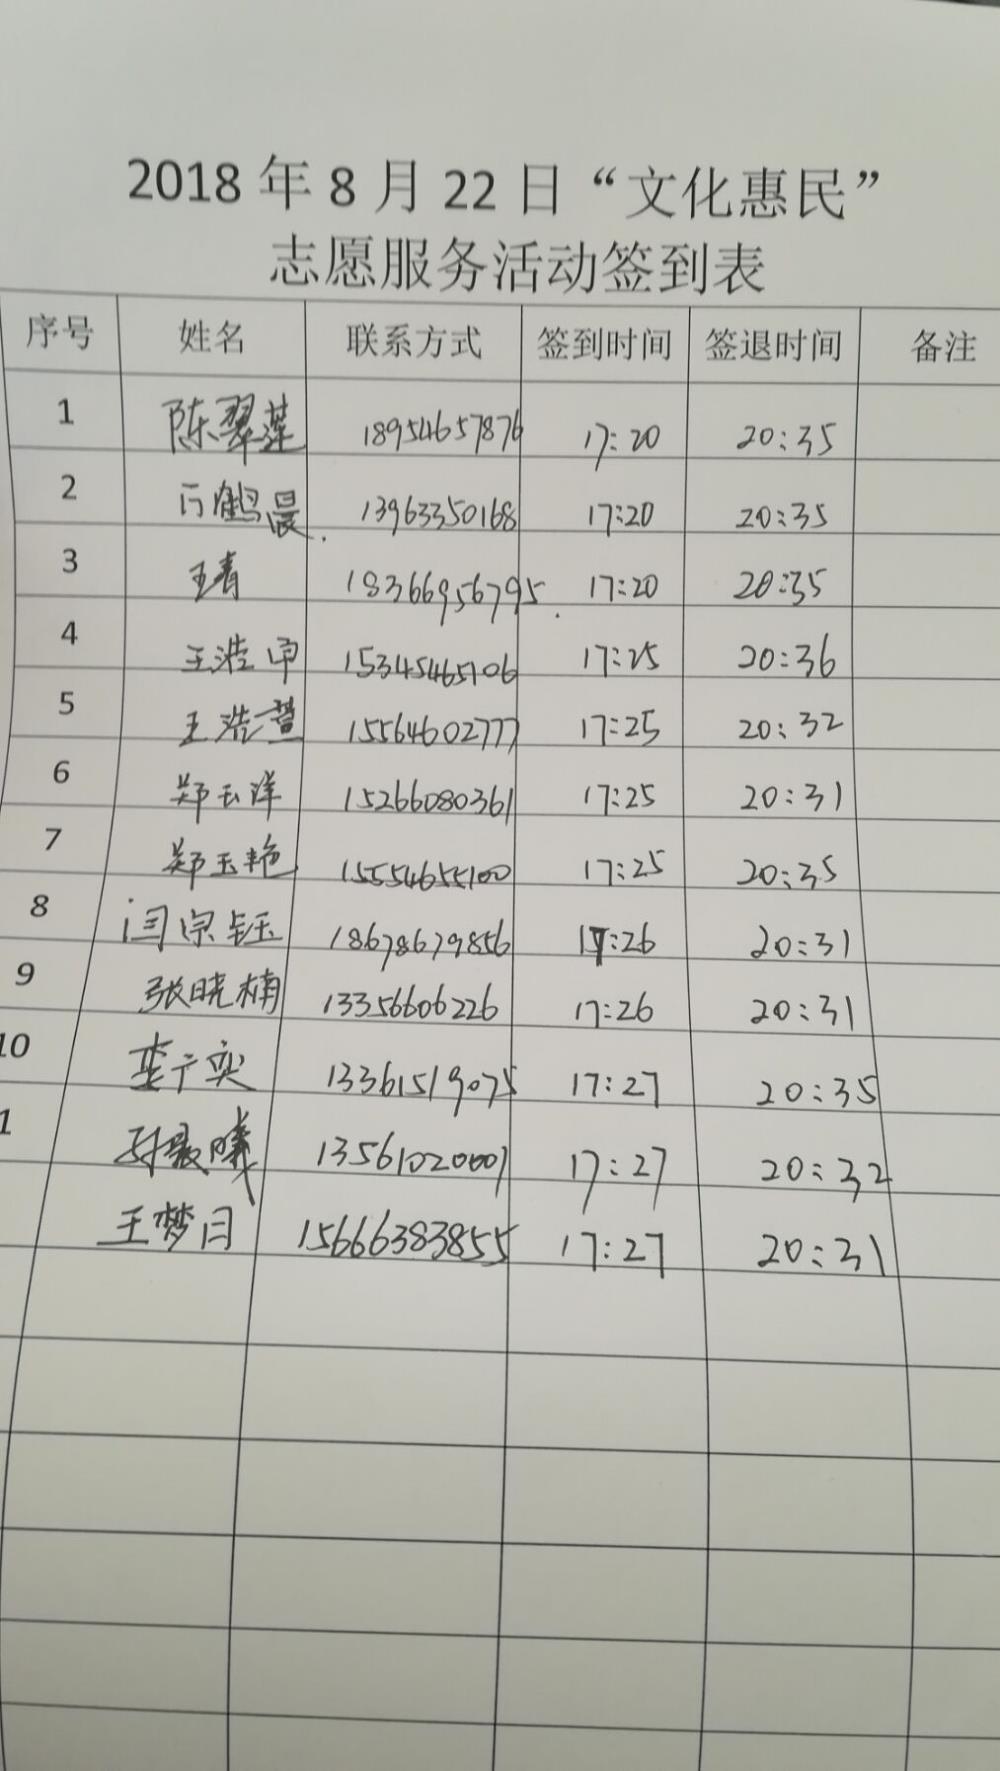 2018 年 8 月 22 日 “文化惠民”
志愿服务活动签到表
序号 姓名 联系方式 签到时间 签退时间 备注
1 陈翠莲 18954657876 17:20 20:35
2 鹤晨 13963350168 17:20 20:35
3 王青 18366956795 17:20 20:35
4 王浩 15345465106 17:25 20:36
5 王浩萱 15564602777 17:25 20:32
6 郑玉洋 15266080361 17:25 20:31
7 郑玉艳 15554655100 17:25 20:35
8 闫宗钰 18678679856 17:26 20:31
9 张晓楠 13356606226 17:26 20:31
10 13361519075 17:27 20:35
1 孙 曦 17:27 20:32
王梦月 15666383855 17:27 20:31